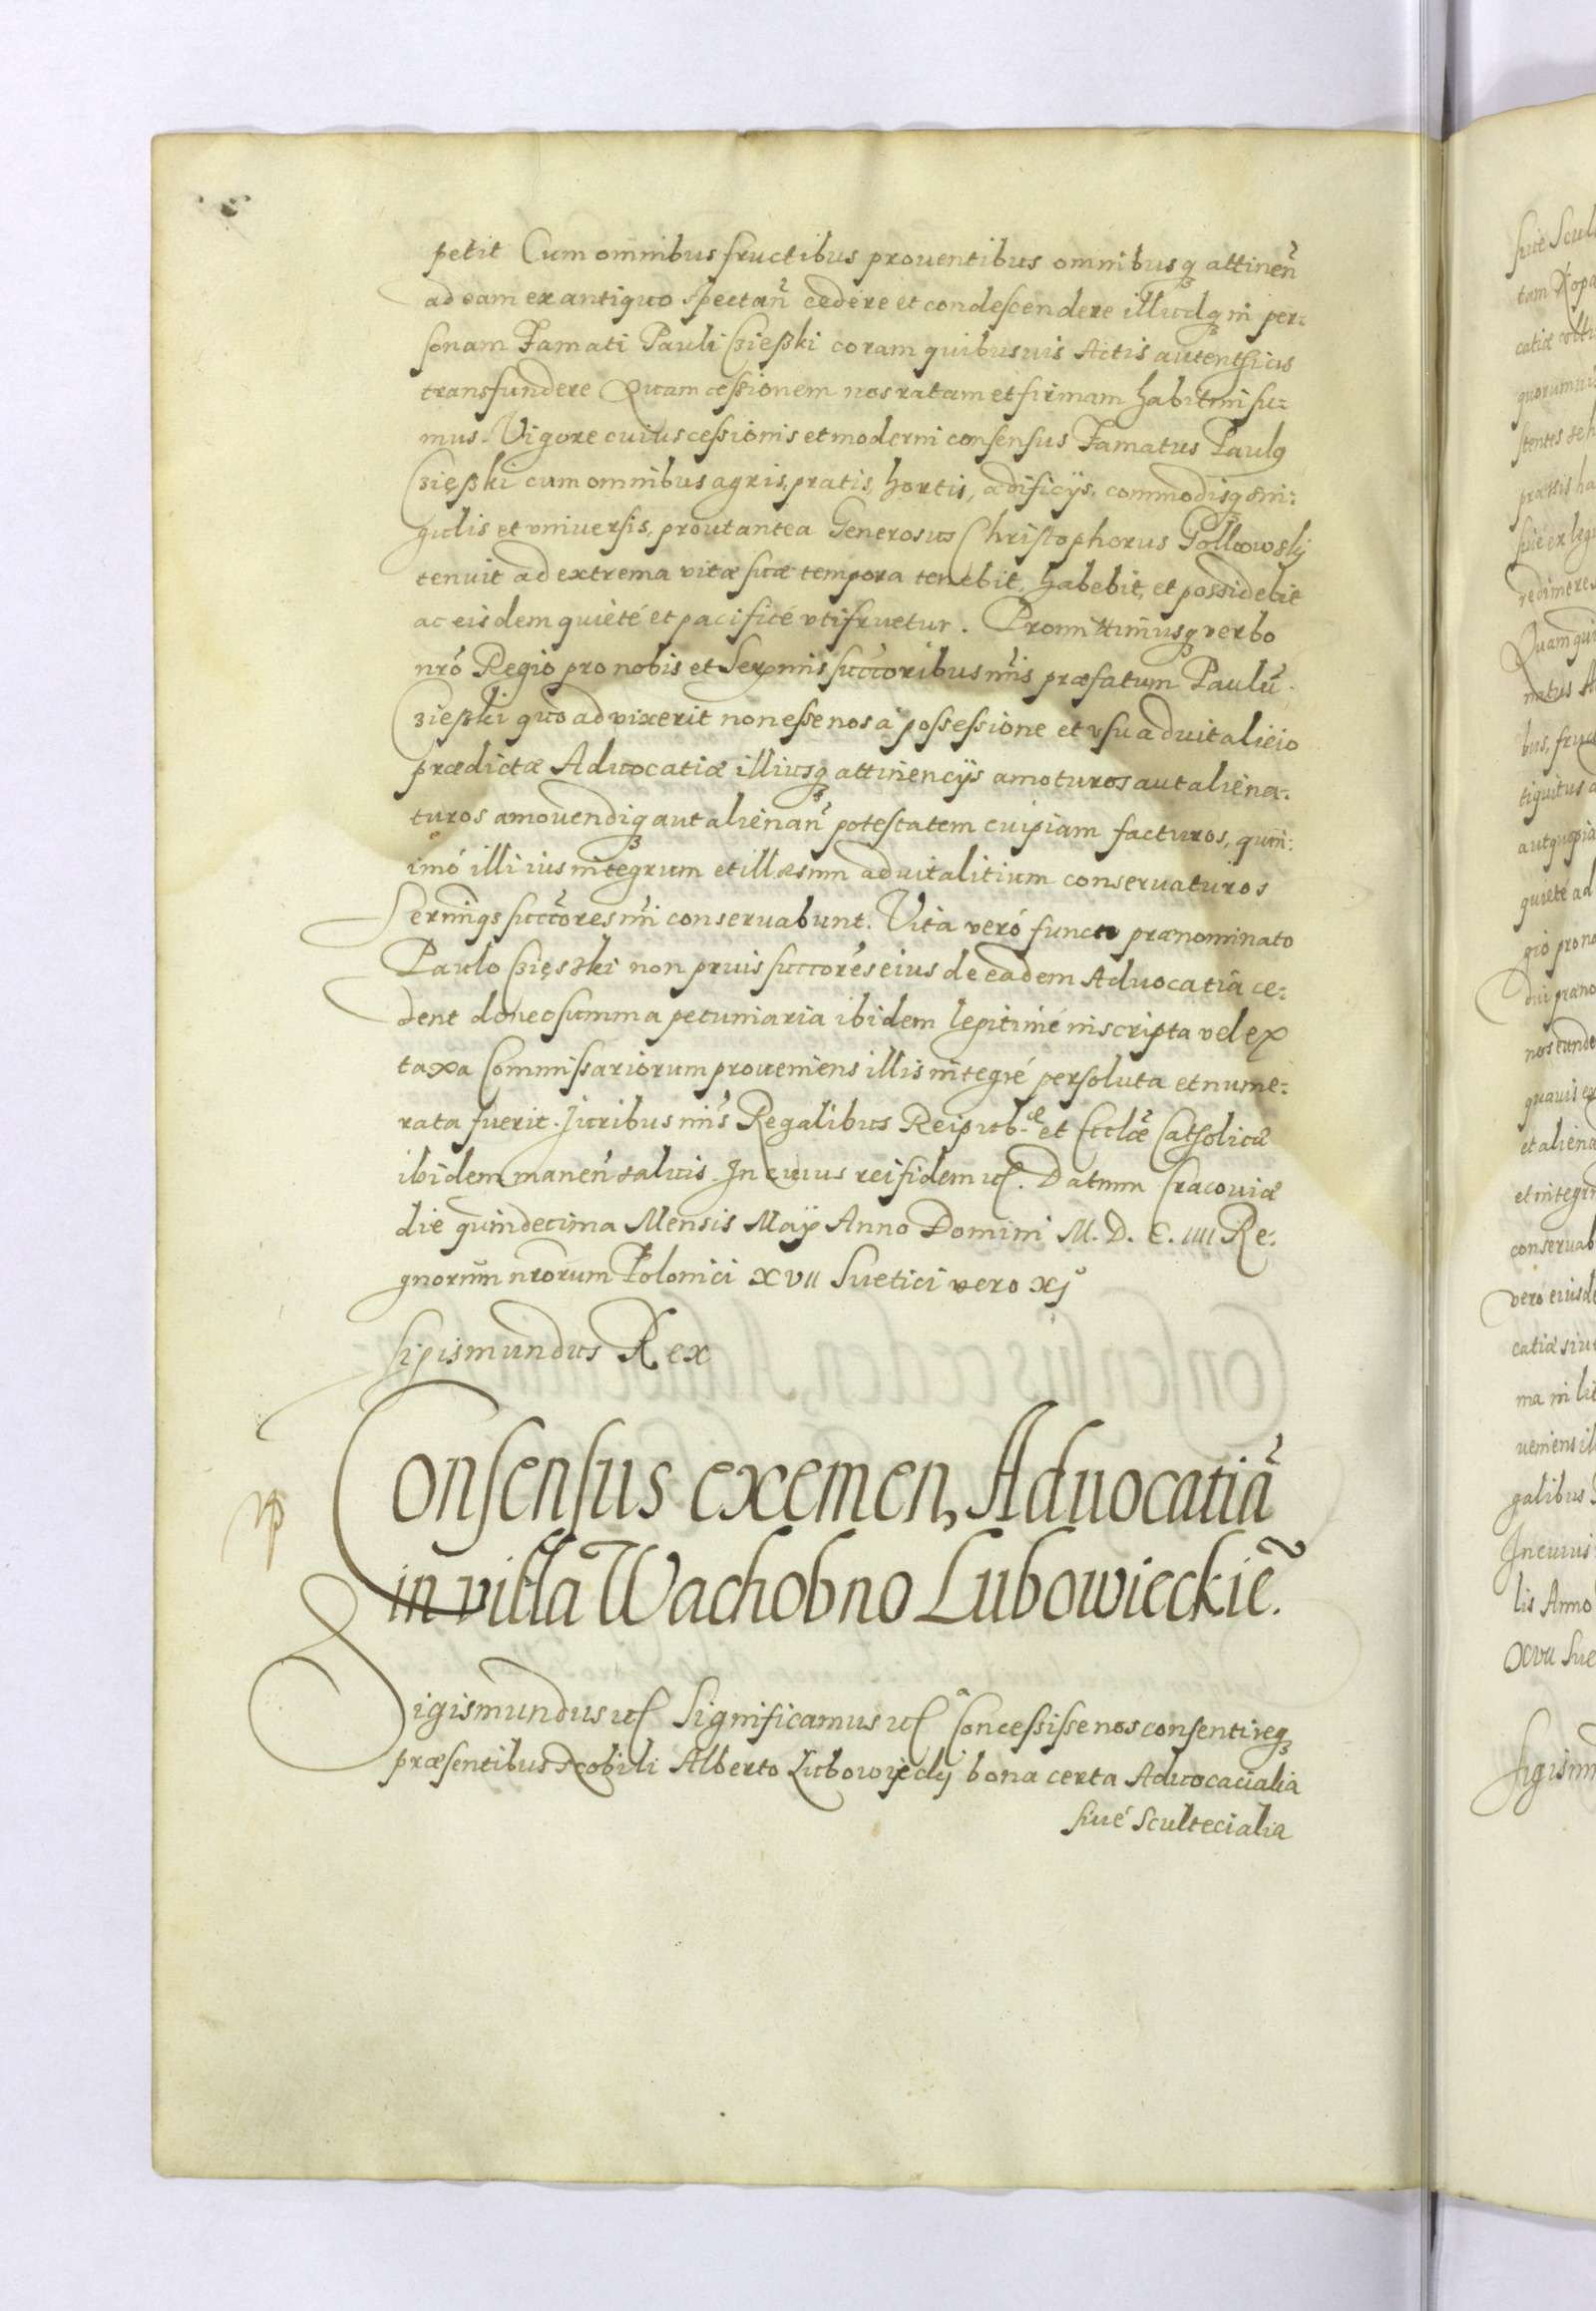 petit Cum omnibus fructibus prouentibus omnibusq̃ attineñ
ad eam ex antiquo spectañ cedere et condescendere illudq̃ in per:
sonam Famati Pauli Czießki coram quibusuis Actis autenthicis
transfundere Quam cessionem nos ratam et firmam habituri su:
mus. Vigore cuius cessionis et moderni consensus Famatus Paulus
Czięßki cum omnibus agris, pratis, hortis, ædificijs, commodisq̃ sin:
gulis et vniuersis, prout antea Generosus Christophorus
tenuit ad extrema vitæ suæ tempora tenebit, habebit, et possidebit
ac eisdem quièté et pacificé vtifruetur. Promittimusq̃ verbo
nrõ Regio pro nobis et Serenmis succcoribus nr̃is præfatum Paulũ
Czießki quoad vixerit non esse nos à possessione et vsu aduitalicio
prædictæ Aduocatiæ illiusq̃ attinencijs amoturos aut aliena:
turos amouendiq̃ aut alienañ potestatem cuipiam facturos, quin:
imó illi ius integrum et illæsum aduitalitium conseruaturos
Sermiq̃ succores nr̃i conseruabunt. Vita veró functo prænominato
Paulo Czięszki non prius succores eius de eadem Aduocatia ce:
dent donec summa pecuniaria ibidem legitimé inscripta vel ex
taxa Commissariorum proueniens illis integré persoluta et nume:
rata fuerit. Juribus nr̃is Regalibus Reipub.cæ et Eccl̃æ Catholicæ
ibidem maneñ saluis. In cuius rei fidem etc. Datum Cracouiæ
die quindecima Mensis Maÿ Anno Domini M. D. C. IIII Re:
gnorum nrorum Polonici XVII Suetici vero XJ
Sigismundus Rex
Consensus exemen, Aduocatiã
in villa Wachobno Lubowieckiẽ.
Sigismundus etc Significamus etc Concessisse nos consentireq̃
præsentibus Nobili Alberto Lubowiecki bona certa Aduocacialia
siué Scultecialia